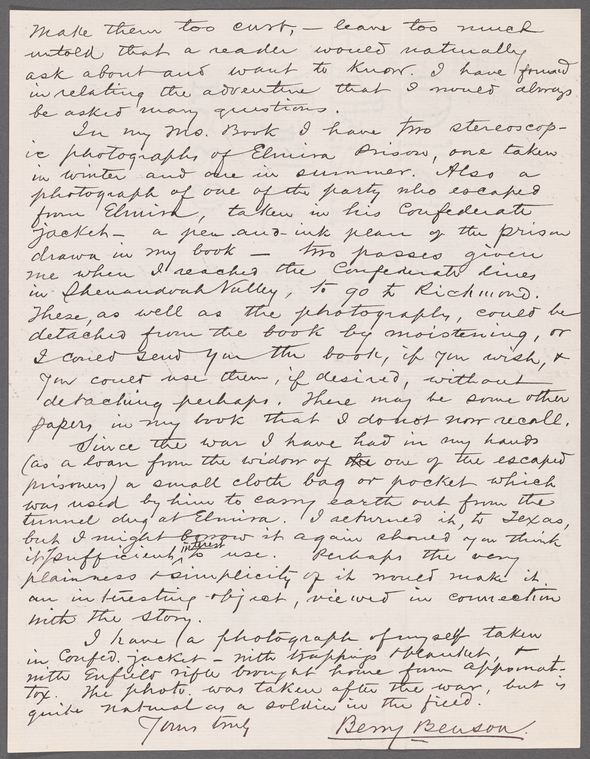 make them too curt, – leave too much
untold that a reader would naturally
ask about and want to know. I have found
in relating the adventure that I would always
be asked many questions.
In my Ms. Book I have two stereoscop-
ic photographs of Elmira Prison, one taken
in winter and one in summer. Also a
photograph of one of the party who escaped
from Elmira, taken in his Confederate
jacket – a pen-and-ink plan of the prison
drawn in my book – two passes given
me when I reached the Confederate lines
in Shenandoah Valley, to go to Richmond.
These, as well as the photographs, could be
detached from the book by moistening, or
I could send you the book, if you wish, &
you could use them, if desired, without
detaching perhaps. There may be some other
papers in my book that I do not now recall.
Since the war I have had in my hands
(as a loan from the widow of the one of the escaped
prisoners) a small cloth bag or pocket which
was used by him to carry earth out from the
tunnel dug at Elmira. I returned it, to Texas,
but I might borrow it again should you think
it sufficient interest to use. Perhaps the very
plainness & simplicity of it would make it
an interesting object, viewed in connection
with the story.
I have a photograph of myself taken
in Confed. jacket – with trappings & blanket, &
with Enfield rifle brought home from Appomat-
tox. The photo. was taken after the war, but is
quite natural as a soldier in the field.
Yours truly
Berry Benson.